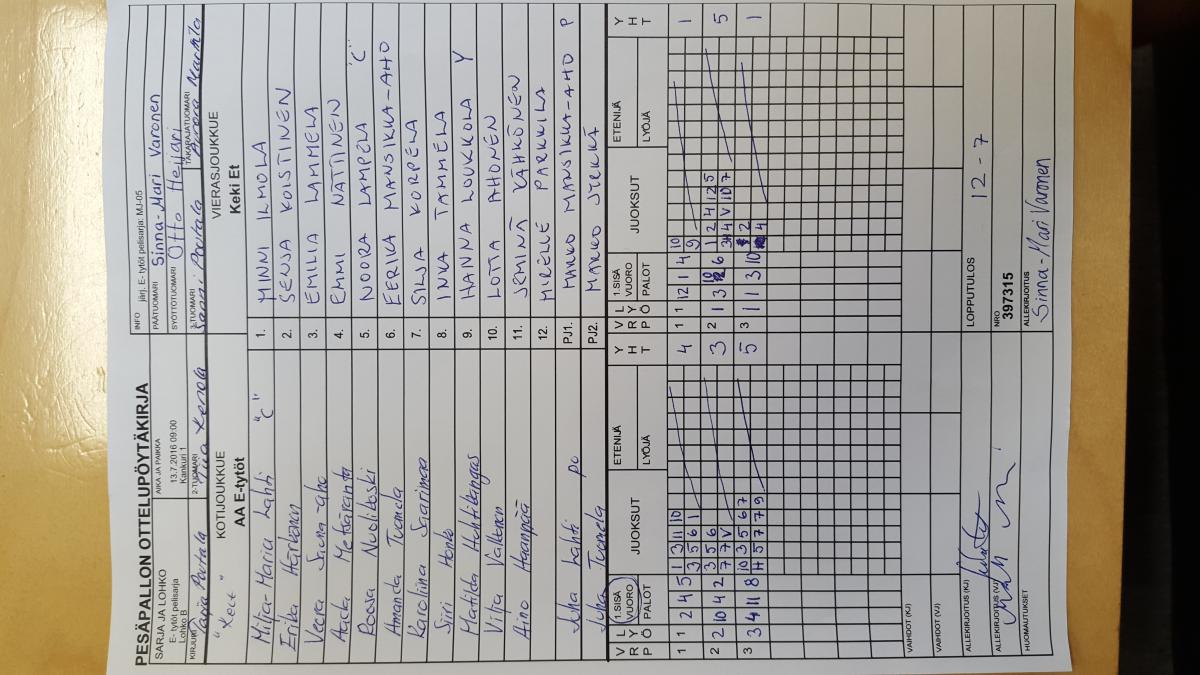 PESÄPALLON OTTELUPÖYTÄKIRJA
SARJA JA LOHKO
E- tytöt pelisarja
Lohko B
AIKA JA PAIKKA
13.7.2016 09:00
Kankuri 1
INFO järj. E- tytöt pelisarja: MJ-05
PÄÄTUOMARI Sinna-Mari Varonen
SYÖTTÖTUOMARI Otto Heijari
KIRJURI
2-TUOMARI
3-TUOMARI
TAKARAJATUOMARI
KOTIJOUKKUE
AA E-tytöt
VIERASJOUKKUE
Keki Et
Milja-Maria Lahti "C" 1. MINNI ILMOLA
Erika Härkönen 2. SENJA KOISTINEN
Veera 3. EMILIA LAMMELA
Aada Metsäranta 4. EMMI NÄTTINEN
Roosa Nuolikoski 5. NOORA LAMPELA "C"
Amanda Tuomela 6. EERIKA MANSIKKA-AHO
Karoliina Saarimaa 7. SILJA KORPELA
Siiri 8. INKA TAMMELA
Matilda Huhtikangas 9. HANNA LOUKKOLA Y
Vilja Valkonen 10. LOTTA AHONEN
Aino Haanpää 11. JEMINA VÄHKÖNEN
12. MIRELLE PARKKILA
Juha Lahti PJ1. MARKO MANSIKKA-AHO P
Juha Tuomela PJ2. MARKO JYLKKÄ
VRP LYÖ 1.SISÄ VUORO PALOT JUOKSUT ETENIJÄ LYÖJÄ YHT VRP LYÖ 1.SISÄ VUORO PALOT JUOKSUT ETENIJÄ LYÖJÄ YHT
1 1 2 4 5 1 3 11 10 4 1 1 12 1 4 10 1
3 5 6 1 9
2 2 10 4 2 3 5 6 3 2 1 3 6 1 2 4 12 5 5
7 7 V 3 4 V 10 7
3 3 4 11 8 10 3 5 6 7 5 3 1 1 3 10 2 1
11 5 7 7 9 4
VAIHDOT (KJ)
VAIHDOT (VJ)
ALLEKIRJOITUS (KJ)
ALLEKIRJOITUS (VJ)
HUOMAUTUKSET
LOPPUTULOS 12 - 7
NRO
397315
ALLEKIRJOITUS
Sinna-Mari Varonen